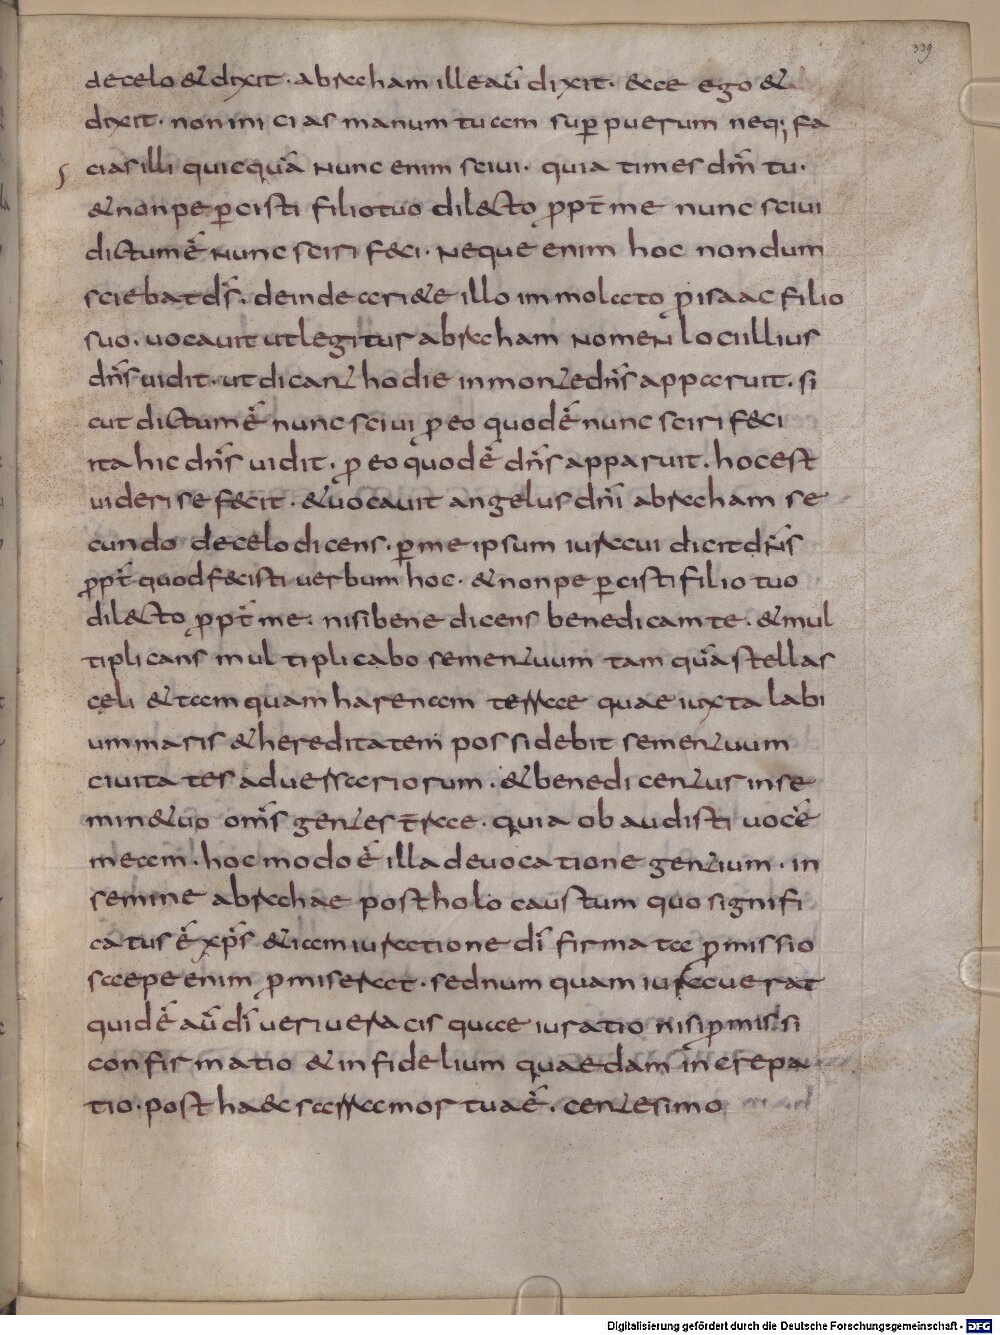 339
de celo & dixit · abraham ille aũ dixit · ecce ego &
dixit · non inicias manum tuam sup̱ puerum neq; fa
cias illi quicquã nunc enim scivi · quia times dm̃ tu ·
& non pep̱cisti filio tuo dilecto p̱pt̃ me nunc scivi
dictum ẽ nunc sciri feci · neque enim hoc nondum
sciebat ds̃ · deinde ariete illo immolato p̱ isaac filio
suo · vocavit ut legitur abraham nomen loci illius
dñs vidit · ut dicant hodie in monte dñs apparuit · si
cut dictum ẽ nunc scivi p̱ eo quod ẽ nunc sciri feci
ita hic dñs vidit · p̱ eo quod ẽ dñs apparuit · hoc est
videri se fecit · & vocavit angelus dñi abraham se
cundo de celo dicens · p̱ me ipsum iuravi dicit dñs
p̱pt̃ quod fecisti verbum hoc · & non pep̱cisti filio tuo
dilecto p̱pt̃ me · nisi benedicens benedicam te · & mul
tiplicans multiplicabo semen tuum tamquã stellas
cęli & tamquam harenam terrae quae iuxta labi
um maris & hereditatem possidebit semen tuum
civitates adversariorum · & benedicentur in se
mine tuo om̃s gentes t̃rae · quia obaudisti vocẽ
meam · hoc modo ẽ illa de vocatione gentium · in
semine abrahae post holocaustum quo signifi
catus ẽ xp̃s & iam iuratione dĩ firmata p̱missio
saepe enim p̱miserat · sed numquam iuraverat
quid ẽ aũ dĩ veri veracis quae iuratio nisi p̱missi
confirmatio & infidelium quaedam increpa
tio · post haec sarra mortua ẽ · centesimo
Digitalisierung gefördert durch die Deutsche Forschungsgemeinschaft - DFG